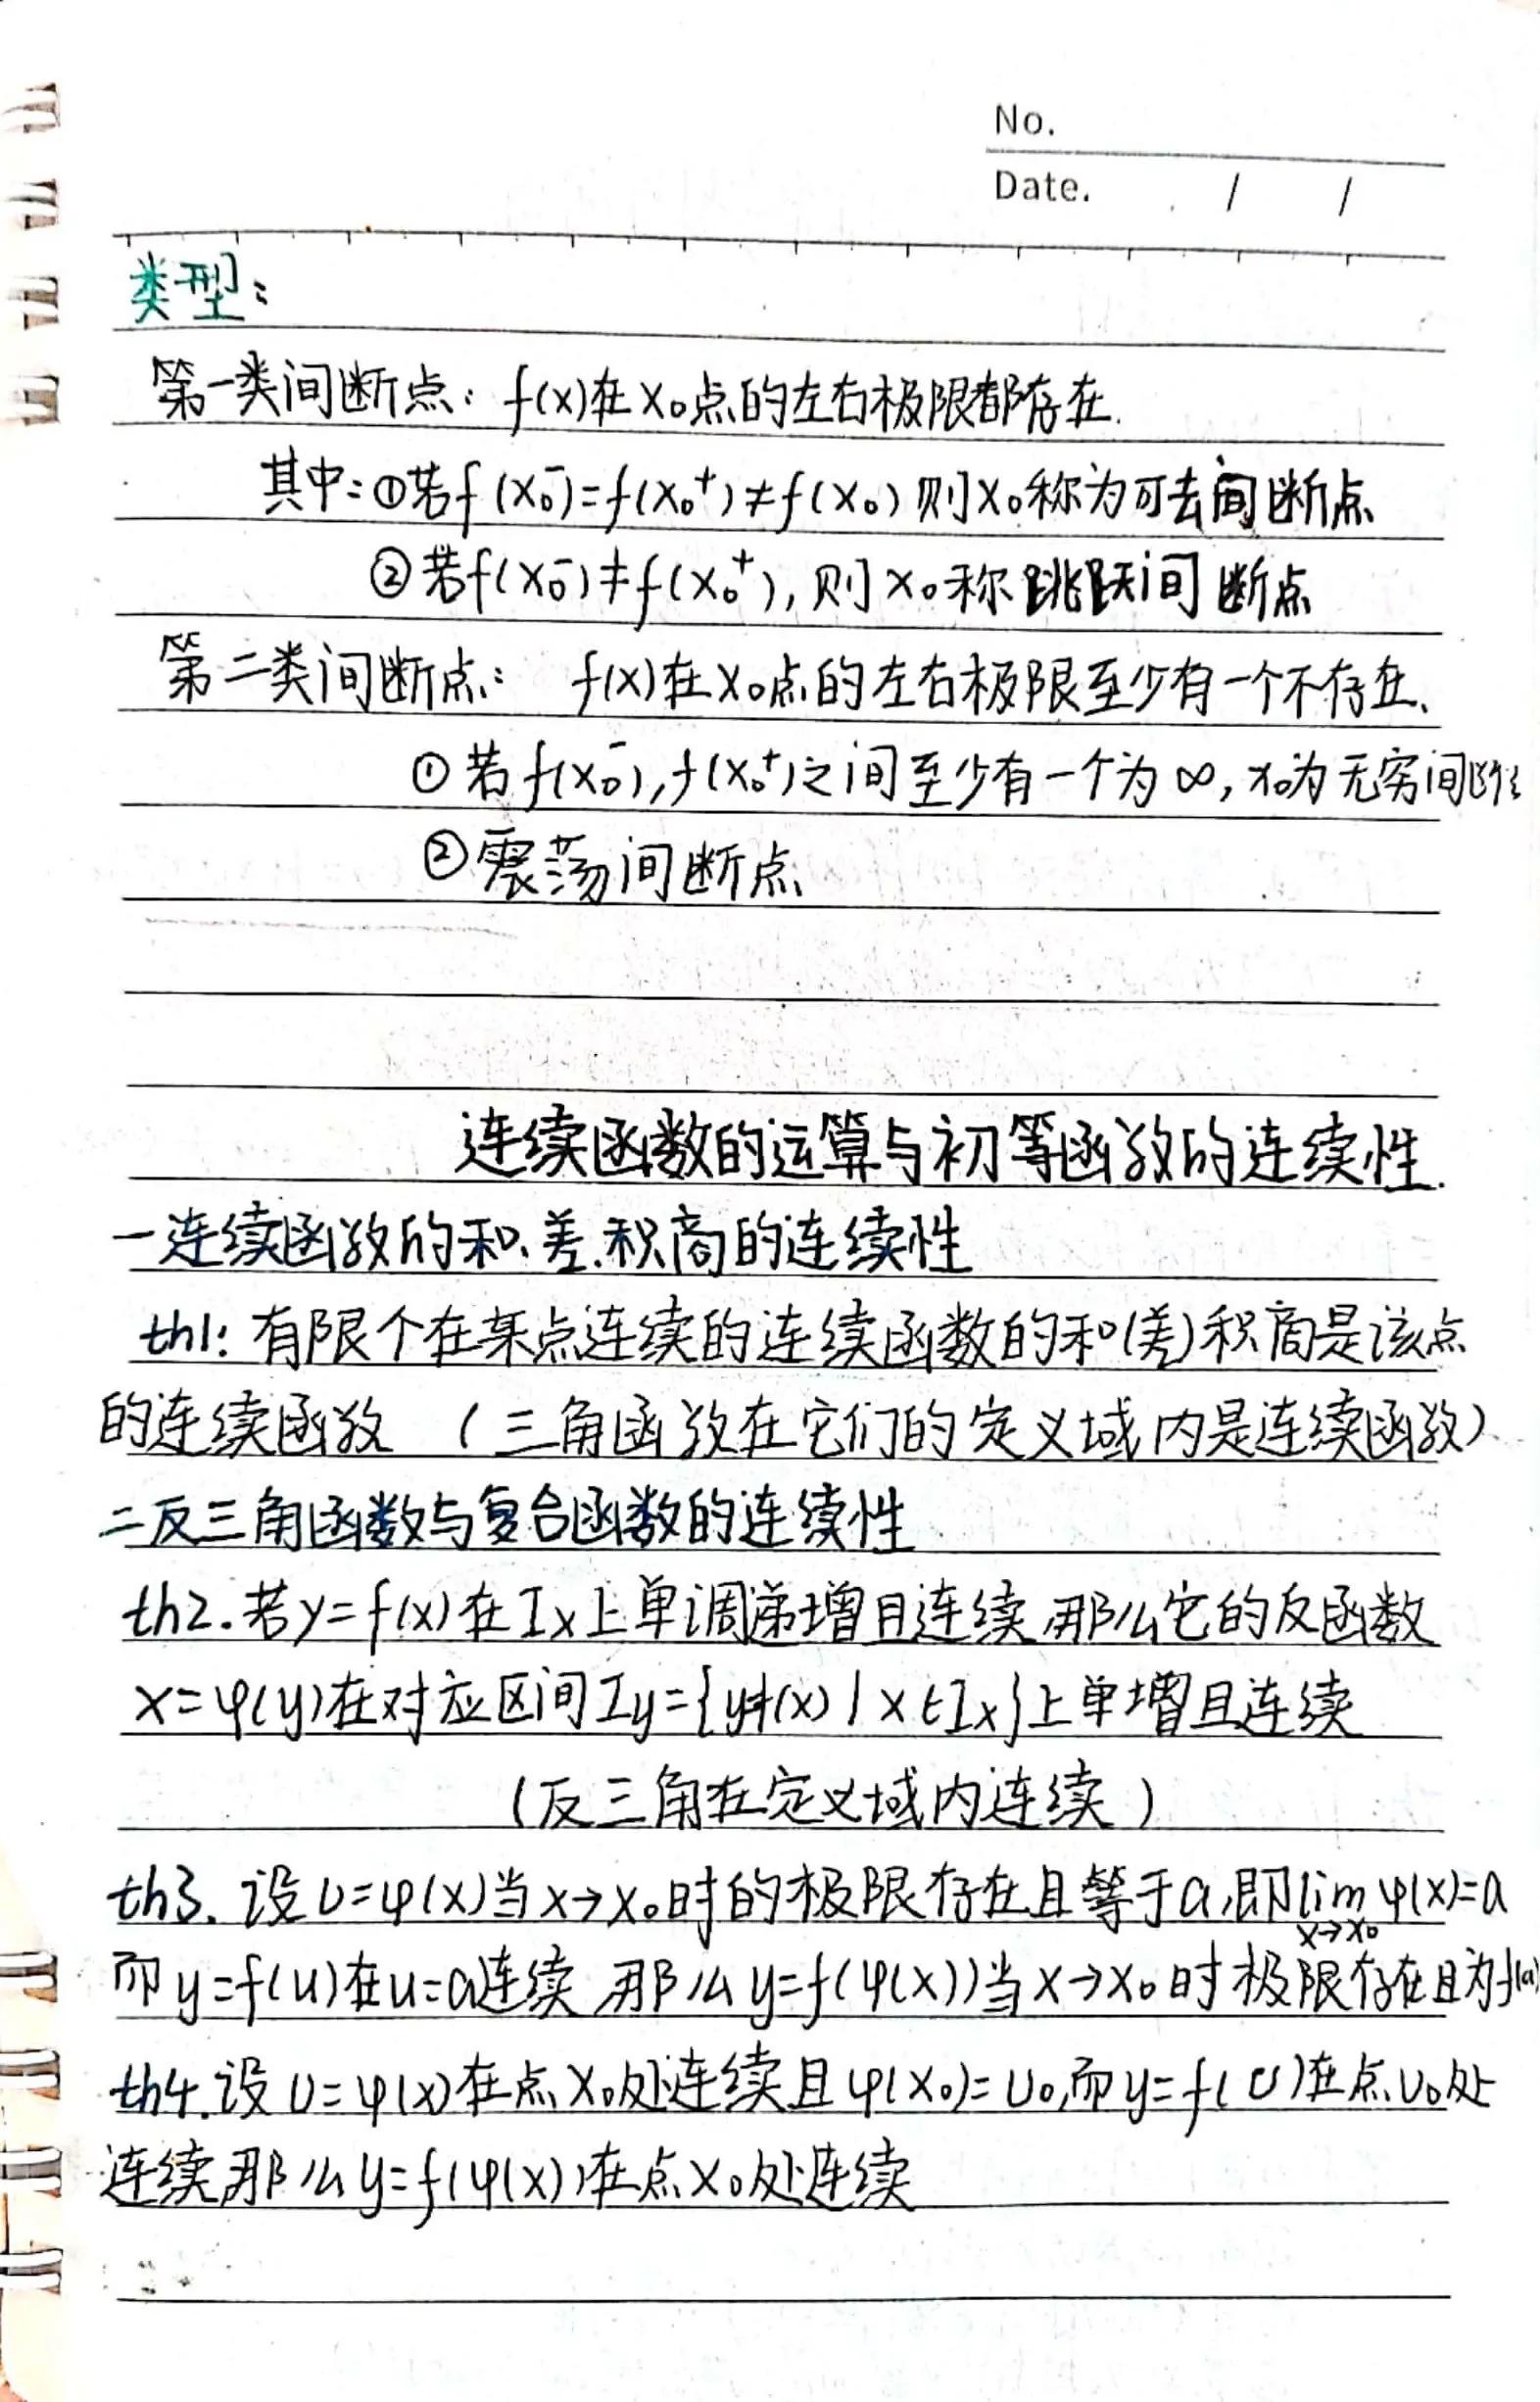 No.
Date. / /
类型：
第一类间断点：f(x)在x₀点的左右极限都存在.
其中：①若f(x₀⁻)=f(x₀⁺)≠f(x₀)则x₀称为可去间断点
②若f(x₀⁻)≠f(x₀⁺),则x₀称跳跃间断点
第二类间断点： f(x)在x₀点的左右极限至少有一个不存在、
①若f(x₀⁻),f(x₀⁺)之间至少有一个为∞,x₀为无穷间断
②震荡间断点
连续函数的运算与初等函数的连续性.
一连续函数的和、差.积商的连续性
th1：有限个在某点连续的连续函数的和(差)积商是该点
的连续函数 （三角函数在它们的定义域内是连续函数）
二反三角函数与复合函数的连续性
th2.若y=f(x)在Ix上单调递增且连续,那么它的反函数
x=φ(y)在对应区间Iy={y=f(x)|x∈Ix}上单增且连续
（反三角在定义域内连续）
th3.设U=φ(x)当x→x₀时的极限存在且等于a,即lim φ(x)=a
x→x₀
而y=f(u)在u=a连续,那么y=f(φ(x))当x→x₀时极限存在且为f(a)
th4.设U=φ(x)在点x₀处连续且φ(x₀)=U₀,而y=f(U)在点U₀处
连续,那么y=f(φ(x))在点x₀处连续